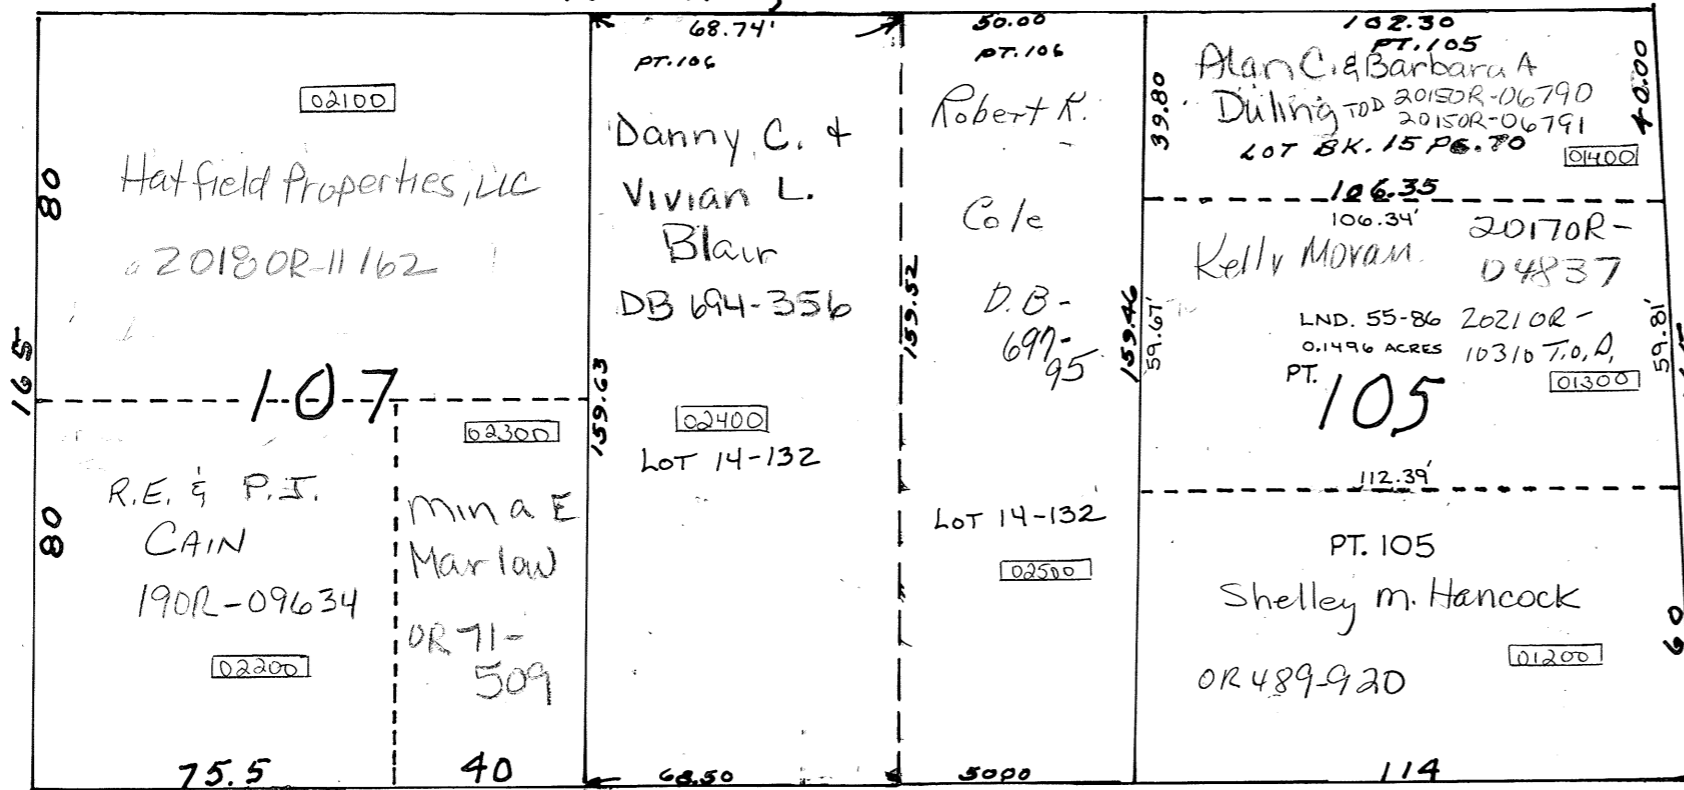 02100
80
Hatfield Properties, LLC
2018OR-11162
165
107
80
R.E. & P.J.
CAIN
190R-09634
02200
75.5
02300
Mina E
Marlow
OR 71-
509
40
68.74'
PT.106
Danny C. &
Vivian L.
Blair
DB 694-356
159.63
02400
LOT 14-132
68.50
50.00
PT.106
Robert K.
Cole
D.B-
697-
95
159.52
159.46
LOT 14-132
02500
5000
102.30
PT.105
Alan C. & Barbara A
Duling TOD 2015OR-06790
2015OR-06791
LOT BK. 15 PG. 70
01400
39.80
40.00
106.35
106.34'
Kelly Moran
2017OR-
04837
LND. 55-86 2021OR-
0.1496 ACRES 10310 T.O.D,
01300
PT.
105
59.67'
59.81'
112.39'
PT. 105
Shelley M. Hancock
01200
OR 489-920
60
114